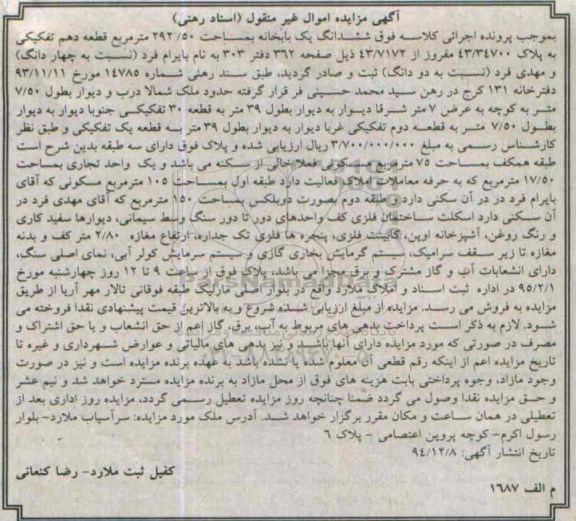 آگهی مزایده اموال غیر منقول (اسناد رهنی)
بموجب پرونده اجرائی کلاسه فوق ششدانگ یک بابخانه بمساحت ۲۹۲/۵۰ مترمربع قطعه دهم تفکیکی
به پلاک ۴۳/۳۴۷۰۰ مفروز از ۴۳/۷۱۷۲ ذیل صفحه ۳۶۲ دفتر ۳۰۳ به نام بایرام فرد (نسبت به چهار دانگ)
و مهدی فرد (نسبت به دو دانگ) ثبت و صادر گردید، طبق سند رهنی شماره ۱۴۷۸۵ مورخ ۹۳/۱۱/۱۱
دفترخانه ۱۳۱ کرج در رهن سید محمد حسینی فر قرار گرفته حدود ملک شمالا درب و دیوار بطول ۷/۵۰
متر به کوچه به عرض ۷ متر شرقا دیوار به دیوار بطول ۳۹ متر به قطعه ۳۰ تفکیکی جنوبا دیوار به دیوار
بطول ۷/۵۰ متر به قطعه دوم تفکیکی غربا دیوار به دیوار بطول ۳۹ متر به قطعه یک تفکیکی و طبق نظر
کارشناس رسمی به مبلغ ۳/۷۰۰/۰۰۰/۰۰۰ ریال ارزیابی شده و پلاک فوق دارای سه طبقه بدین شرح است
طبقه همکف بمساحت ۷۵ مترمربع مسکونی فعلا خالی از سکنه می باشد و یک واحد تجاری بمساحت
۱۷/۵۰ مترمربع که به حرفه معاملات املاک فعالیت دارد طبقه اول بمساحت ۱۰۵ مترمربع مسکونی که آقای
بایرام فرد در در آن سکنی دارد، طبقه دوم بصورت دوبلکس بمساحت ۱۵۰ مترمربع که آقای مهدی فرد در
آن سکنی دارد اسکلت ساختمان فلزی کف واحدهای دور تا دور سنگ وسط سیمانی، دیوارها سفید کاری
و رنگ روغن، آشپزخانه اوپن، کابینت فلزی، پنجره ها فلزی تک جداره، ارتفاع مغازه ۲/۸۰ متر کف و بدنه
مغازه تا زیر سقف سرامیک، سیستم گرمایش بخاری گازی و سیستم سرمایش کولر آبی، نمای اصلی سنگ،
دارای انشعابات آب و گاز مشترک و برق مجزا می باشد، پلاک فوق از ساعت ۹ تا ۱۲ روز چهارشنبه مورخ
۹۵/۲/۱ در اداره ثبت اسناد و املاک ملارد واقع در بلوار اصلی مارلیک طبقه فوقانی تالار مهر آریا از طریق
مزایده به فروش می رسد. مزایده از مبلغ ارزیابی شده شروع و به بالاترین قیمت پیشنهادی نقدا فروخته می
شود. لازم به ذکر است پرداخت بدهی های مربوط به آب، برق، گاز اعم از حق انشعاب و یا حق اشتراک و
مصرف در صورتی که مورد مزایده دارای آنها باشد و نیز بدهی های مالیاتی و عوارض شهرداری و غیره تا
تاریخ مزایده اعم از اینکه رقم قطعی آن معلوم شده یا نشده باشد به عهده برنده مزایده است و نیز در صورت
وجود مازاد، وجوه پرداختی بابت هزینه های فوق از محل مازاد به برنده مزایده مسترد خواهد شد و نیم عشر
و حق مزایده نقدا وصول می گردد ضمنا چنانچه روز مزایده تعطیل رسمی گردد، مزایده روز اداری بعد از
تعطیلی در همان ساعت و مکان مقرر برگزار خواهد شد. آدرس ملک مورد مزایده: سرآسیاب ملارد- بلوار
رسول اکرم- کوچه پروین اعتصامی - پلاک ۶
تاریخ انتشار آگهی: ۹۴/۱۲/۸
کفیل ثبت ملارد- رضا کنعانی
م الف ۱۶۸۷